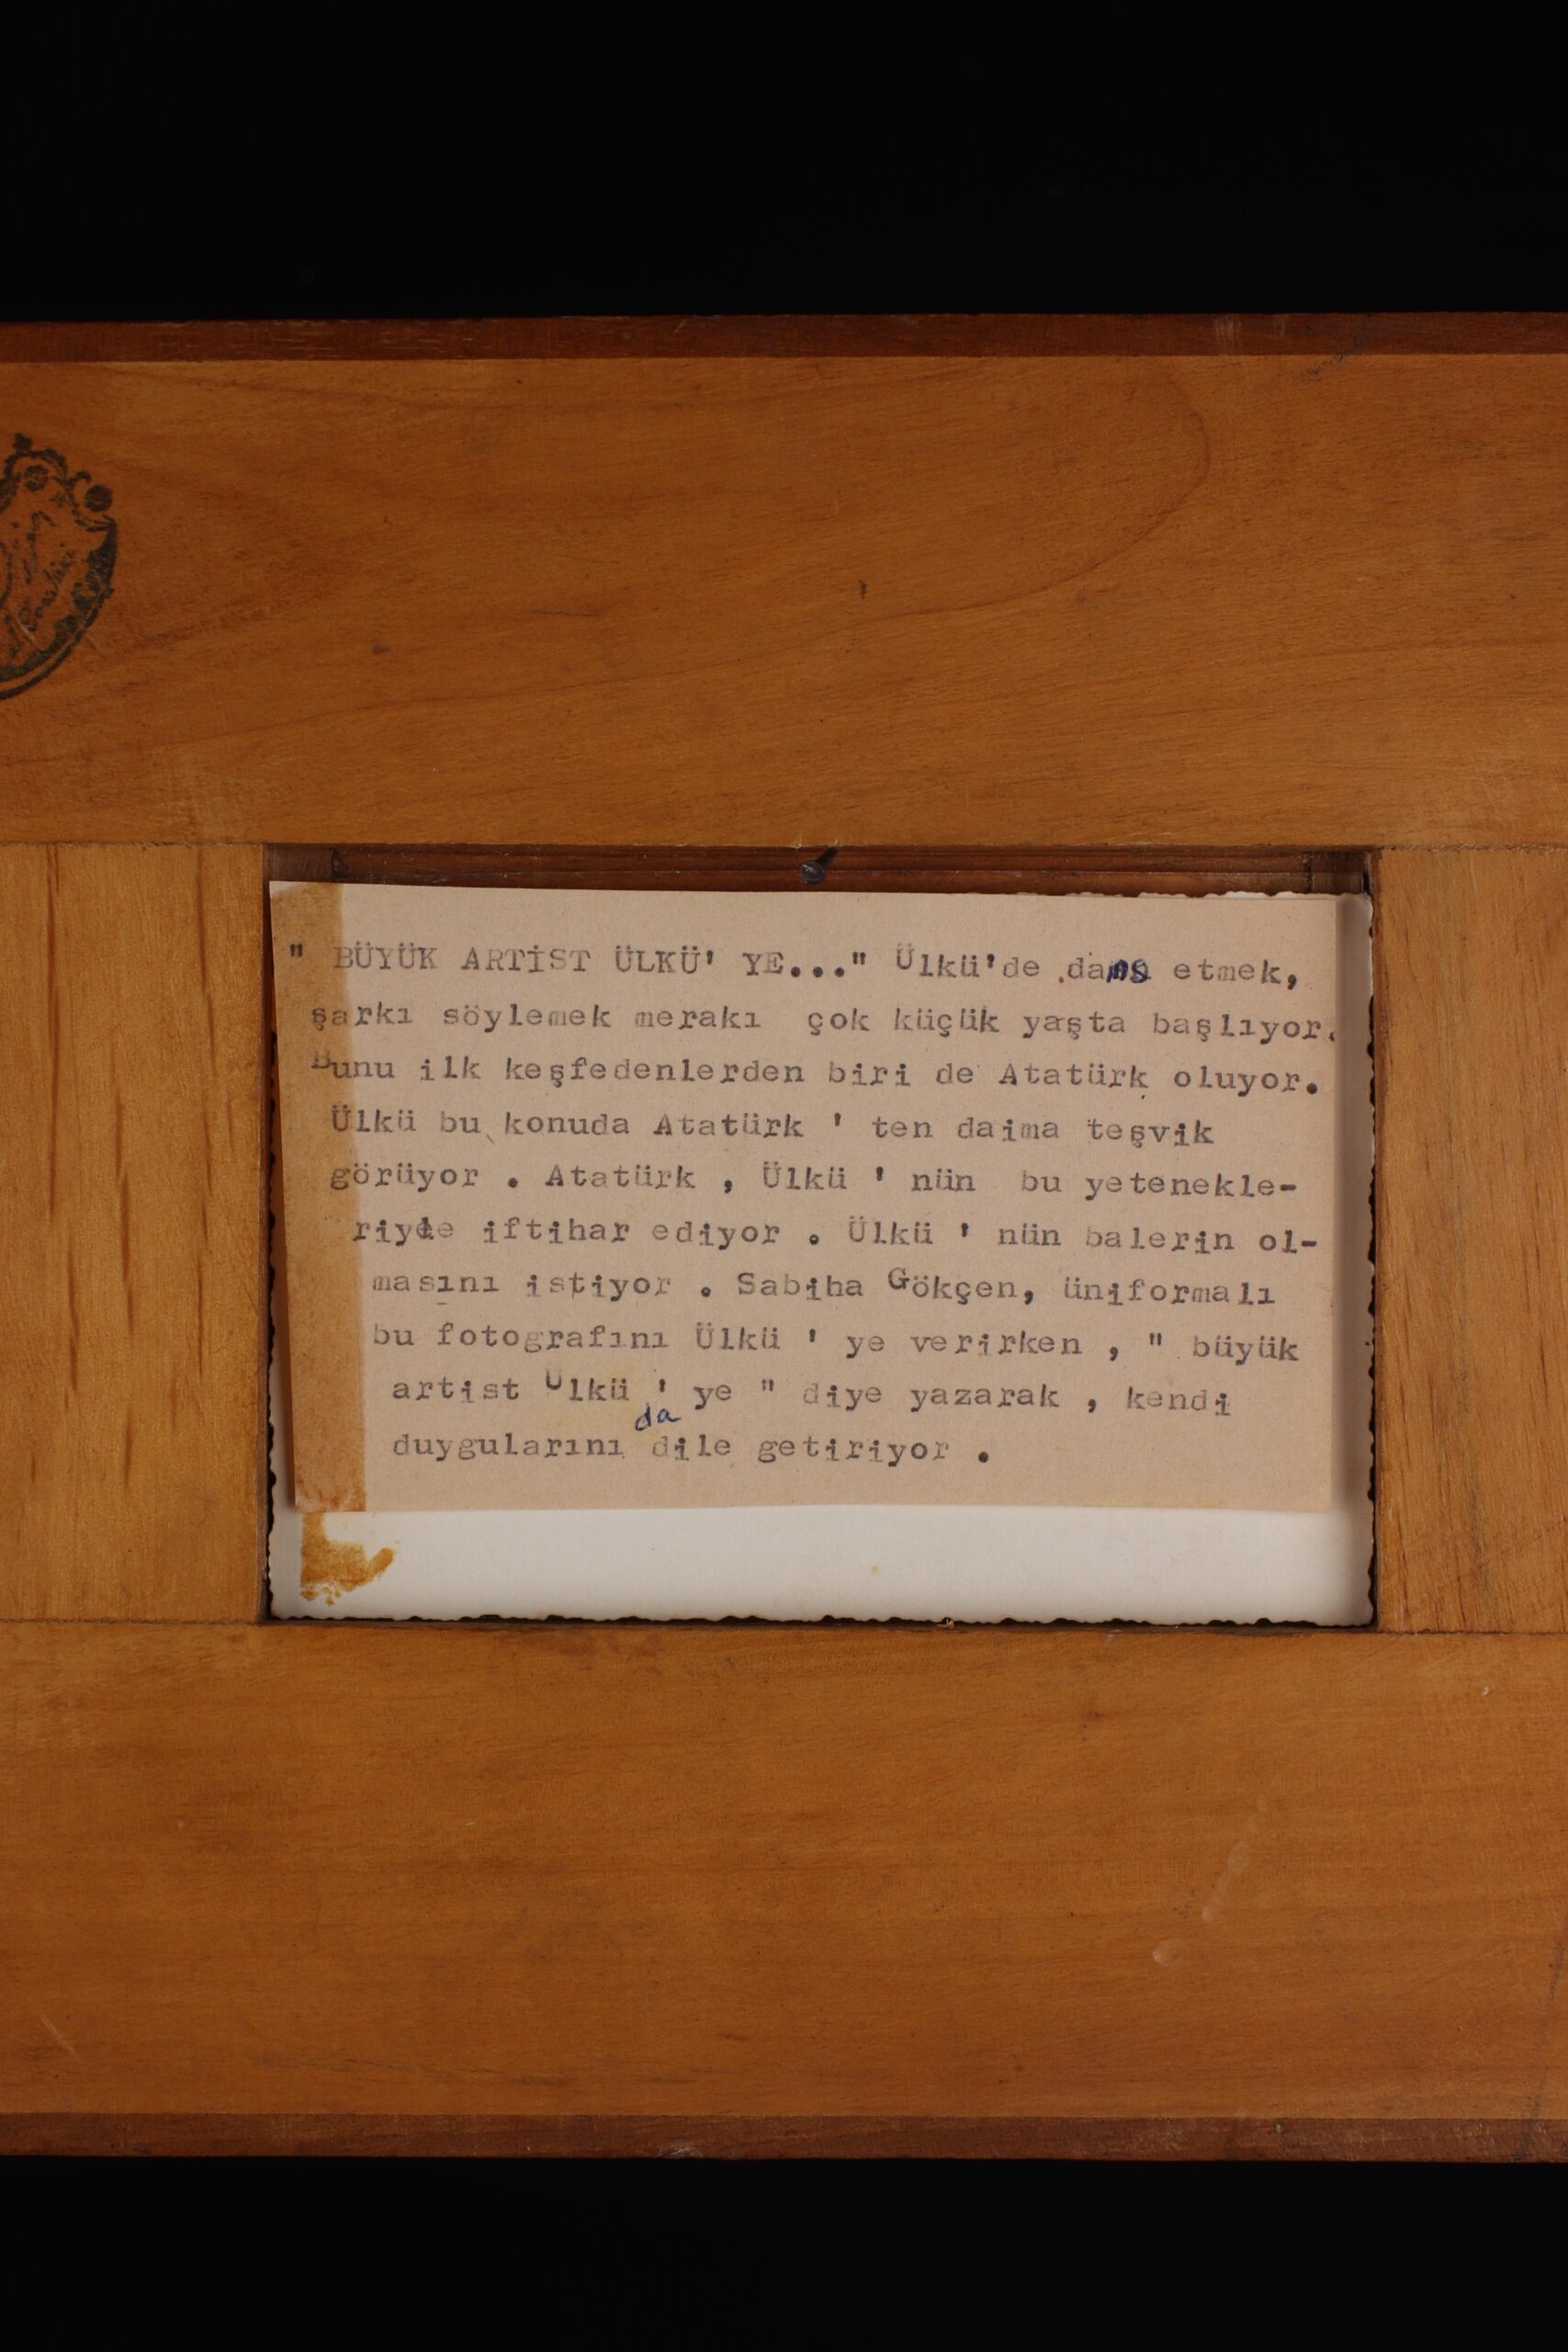 " BÜYÜK ARTİST ÜLKÜ' YE..." Ülkü'de dans etmek,
şarkı söylemek merakı çok küçük yaşta başlıyor.
Bunu ilk keşfedenlerden biri de Atatürk oluyor.
Ülkü bu konuda Atatürk ' ten daima teşvik
görüyor . Atatürk , Ülkü ' nün bu yetenekle-
riyle iftihar ediyor . Ülkü ' nün balerin ol-
masını istiyor . Sabiha Gökçen, üniformalı
bu fotografını Ülkü ' ye verirken , " büyük
artist Ülkü ' ye " diye yazarak , kendi
da
duygularını dile getiriyor .